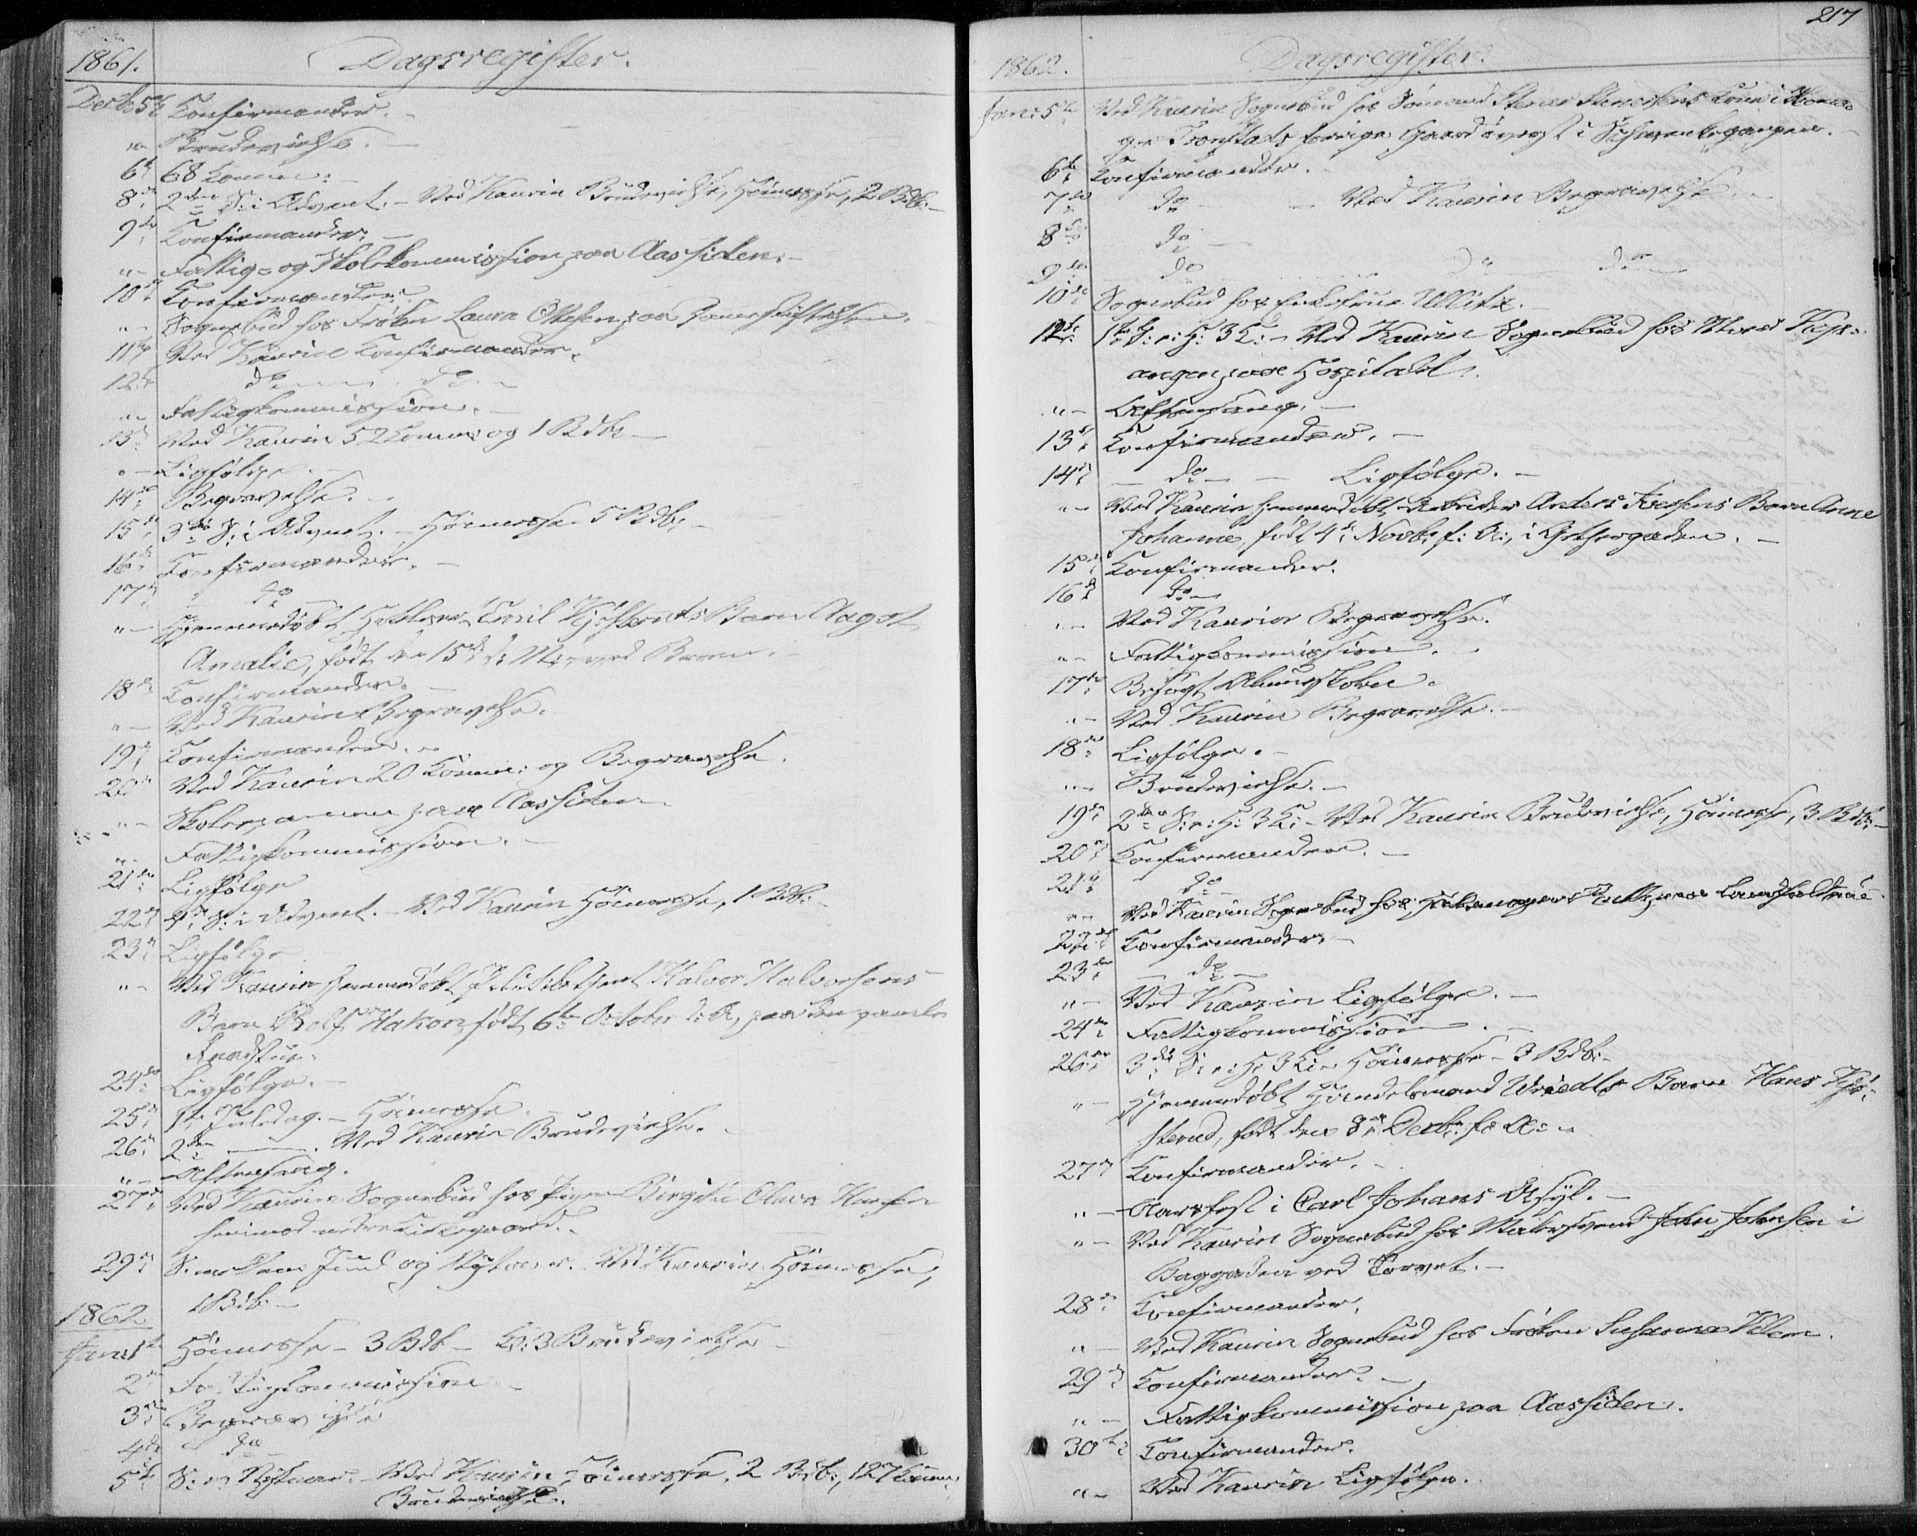 1861. Dagsregister.
Decbr 5te Konfirmander.
"– Brudevielse. –
6te 68 Komm: –
8de 2den S. i Advent. – Ved Kaurin Brudevielse, Høimesse, 2 Bdb. –
9de Konfirmander. –
"– Fattig- og Skolekommission paa Aassiden. –
10de Konfirmander.
"– Sognebud hos Frøken Laura Ottesen paa
11te Ved Kaurin Konfirmander.
12te do – do –
"– Fattigkommission. –
13de Ved Kaurin 52 Komm: og 1 Bdb –
"– Ligfølge. –
14de Begravelse. –
15de 3die S. i Advent. – Høimesse 5 Bdb. –
16de Konfirmander. –
17de do –
"– Hjemmedøbt Emil Barn Aagot
Amalie, født den 15de ds Mts ved Broen. –
18de Konfirmander. –
"– Ved Kaurin Begravelse.
19de Konfirmander. –
20de Ved Kaurin 20 Komm: og Begravelse.
"– Skoleexamen paa Aassiden
"– Fattigkommission. –
21de Ligfølge
22de 4de S. i Advent. – Ved Kaurin Høimesse, 1 Bdb. –
23de Ligfølge
"– Ved Kaurin hjemmedøbt Politibetjent Halvor Halvorsens
Barn Rolf Hakon født 6te October d: A, paa den gamle
Raadstue.
24de Ligfølge. –
25de 1ste Juledag. – Høimesse.
26de 2den – Ved Kaurin Brudevielse. –
"– Aftensang.
27de Ved Kaurin Sognebud hos Pigen Birgitte
Kirkegaard. –
29de S. mellem Juul og Nytaar. – Ved Kaurin Høimesse,
1 Bdb. –
1862
Janr 1ste Høimesse – 3 Bdb – 3 Brudevielse –
2den Fattigkommission –
3die Begravelse
4de do –
5te S. e. Nytaar. – Ved Kaurin Høimesse, 2 Bdb., 127 Komm.
Brudevielse.
217
1862. Dagsregister.
Janr 5te Ved Kaurin Sognebud hos Sømand Kone i
Tronstads forrige Gaard øverst i
6te Konfirmander.
7de do – – Ved Kaurin Begravelse. –
8de do –
9de do " do –
10de Sognebud hos Enkefrue Ullitz.
12te 1ste S. e. H. 3 K. – Ved Kaurin Sognebud hos
paa Hospitalet.
"– Aftensang. –
13de Konfirmander. –
14de – do – – Ligfølge. –
"– Ved Kaurin hjemmedøbt Arbeider Anders Barn Anne
Johanne, født 4de Novbr f. A., i –
15de Konfirmander.
16de do –
"– Ved Kaurin Begravelse.
"– Fattigkommission. –
17de Besøgt Almueskolen.
"– Ved Kaurin Begravelse. –
18de Ligfølge. –
"– Brudevielse. –
19de 2den S. e. H. 3 K. – Ved Kaurin Brudevielse, Høimesse, 3 Bdb. –
20de Konfirmander. –
21de do –
"– Ved Kaurin Sognebud hos
22de Konfirmander. –
23de – do –
"– Ved Kaurin Ligfølge. –
24de Fattigkommission –
26de 3die S. e. H. 3 K. – Høimesse – 3 Bdb. –
"– Hjemmedøbt Handelsmand Wriedts Barn Hans
født den 8de Decbr f. A. –
27de Konfirmander. –
"– Aarsfest i Carl Johans Asyl. –
"– Ved Kaurin Sognebud hos Malersvend John Johnsen i
Baggaden ved Torvet. –
28de Konfirmander.
"– Ved Kaurin Sognebud hos Frøken Susanna
29de Konfirmander. –
"– Fattigkommission paa Aassiden.
30te Konfirmander.
"– Ved Kaurin Ligfølge.